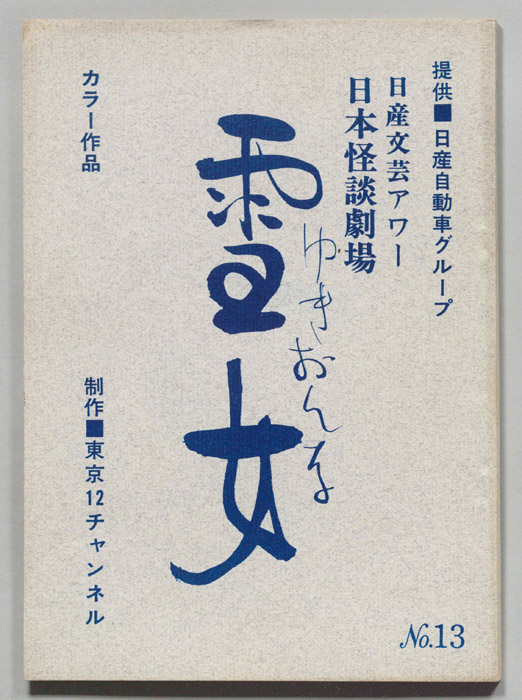 提供■日産自動車グループ
日産文芸アワー
日本怪談劇場
ゆきおんな
雪女
カラー作品
制作■東京12チャンネル
No.13